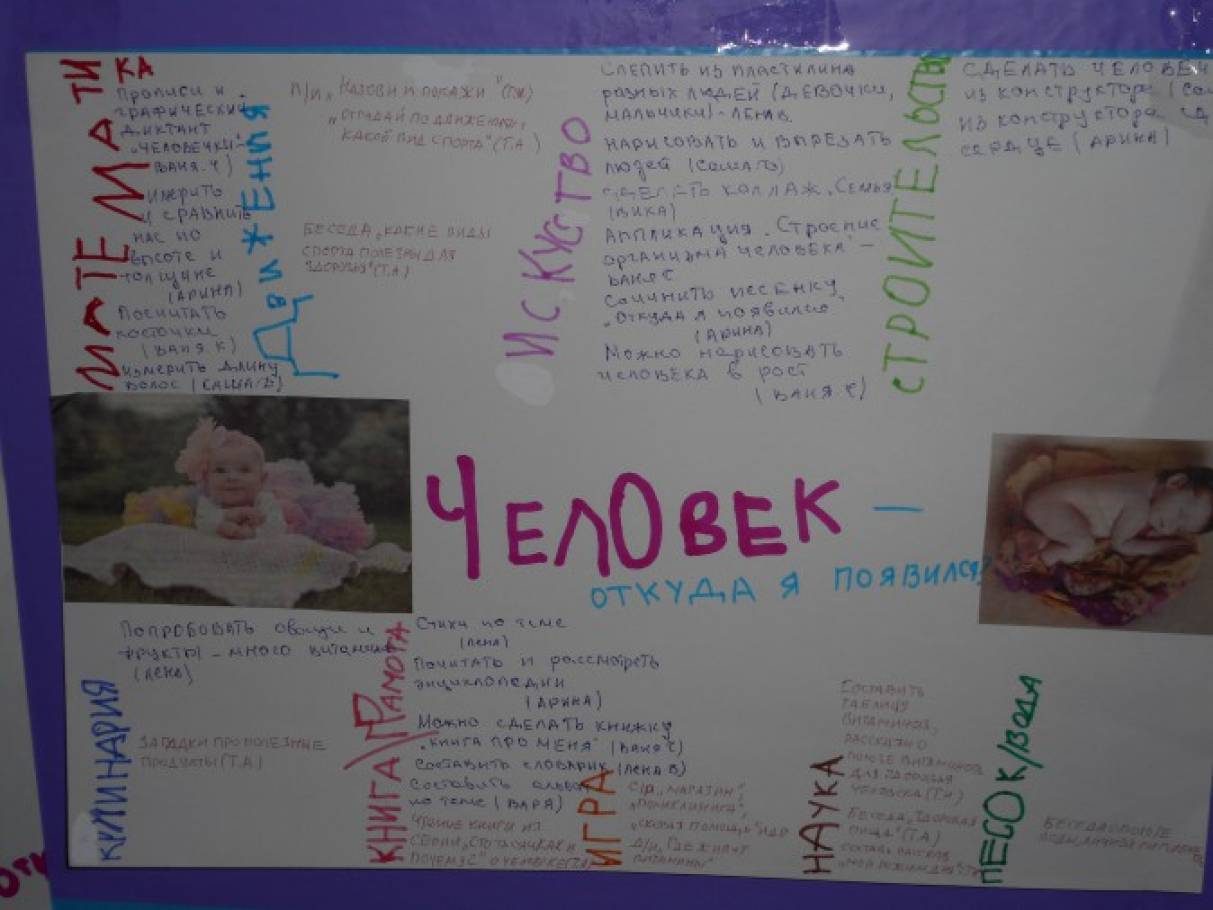 МАТЕМАТИКА
Прописи и
графический
диктант
„Человечки"-
(Ваня.Ч)
Измерить
и сравнить
нас по
высоте и
толщине
(Арина)
Посчитать
косточки
(Ваня.К)
Измерить длину
волос (
ДВИЖЕНИЯ
П/и „Назови и покажи"
„Отгадай по движению,
какой вид спорта" (Т.А.)
Беседа „Какие виды
спорта полезны для
здоровья" (Т.А.)
ИСКУСТВО
Слепить из пластилина
разных людей (девочки,
мальчики)-Лена В.
Нарисовать и вырезать
людей (Саша Б)
Сделать коллаж „Семья
(Вика)
Аппликация „Строение
организма человека" -
Ваня С
Сочинить песенку
„Откуда я появился"
(Арина)
Можно нарисовать
человека в рост
(Ваня.С)
СТРОИТЕЛЬСТВО
Сделать человеч
из конструктора (Са
Из конструктора сд
сердце (Арина)
ЧЕЛОВЕК –
ОТКУДА Я ПОЯВИЛСЯ?
КУЛИНАРИЯ
Попробовать овощи и
фрукты - много витаминов
(Лена)
Загадки про полезные
продукты (Т.А.)
КНИГА/ГРАМОТА
Стихи по теме
(Лена)
Почитать и рассмотреть
энциклопедии
(Арина)
Можно сделать книжку
„Книга про меня" (Ваня С)
Составить словарик (Лена В)
Составить альбом
по теме (Варя)
Чтение книги из
серии „Сто тысяч как и
почему"
ИГРА
С/р „Магазин",
„Поликлиника",
„Скорая помощь" и др
Д/и „Где живут
витамины"
НАУКА
Составить
таблицу
витаминов,
рассказ о
пользе витаминов
для здоровья
человека
Беседа „Здоровая
пища" (Т.А.)
Составь рассказ
„Мой режим дня"
ПЕСОК/ВОДА
Беседа о пользе
воды,